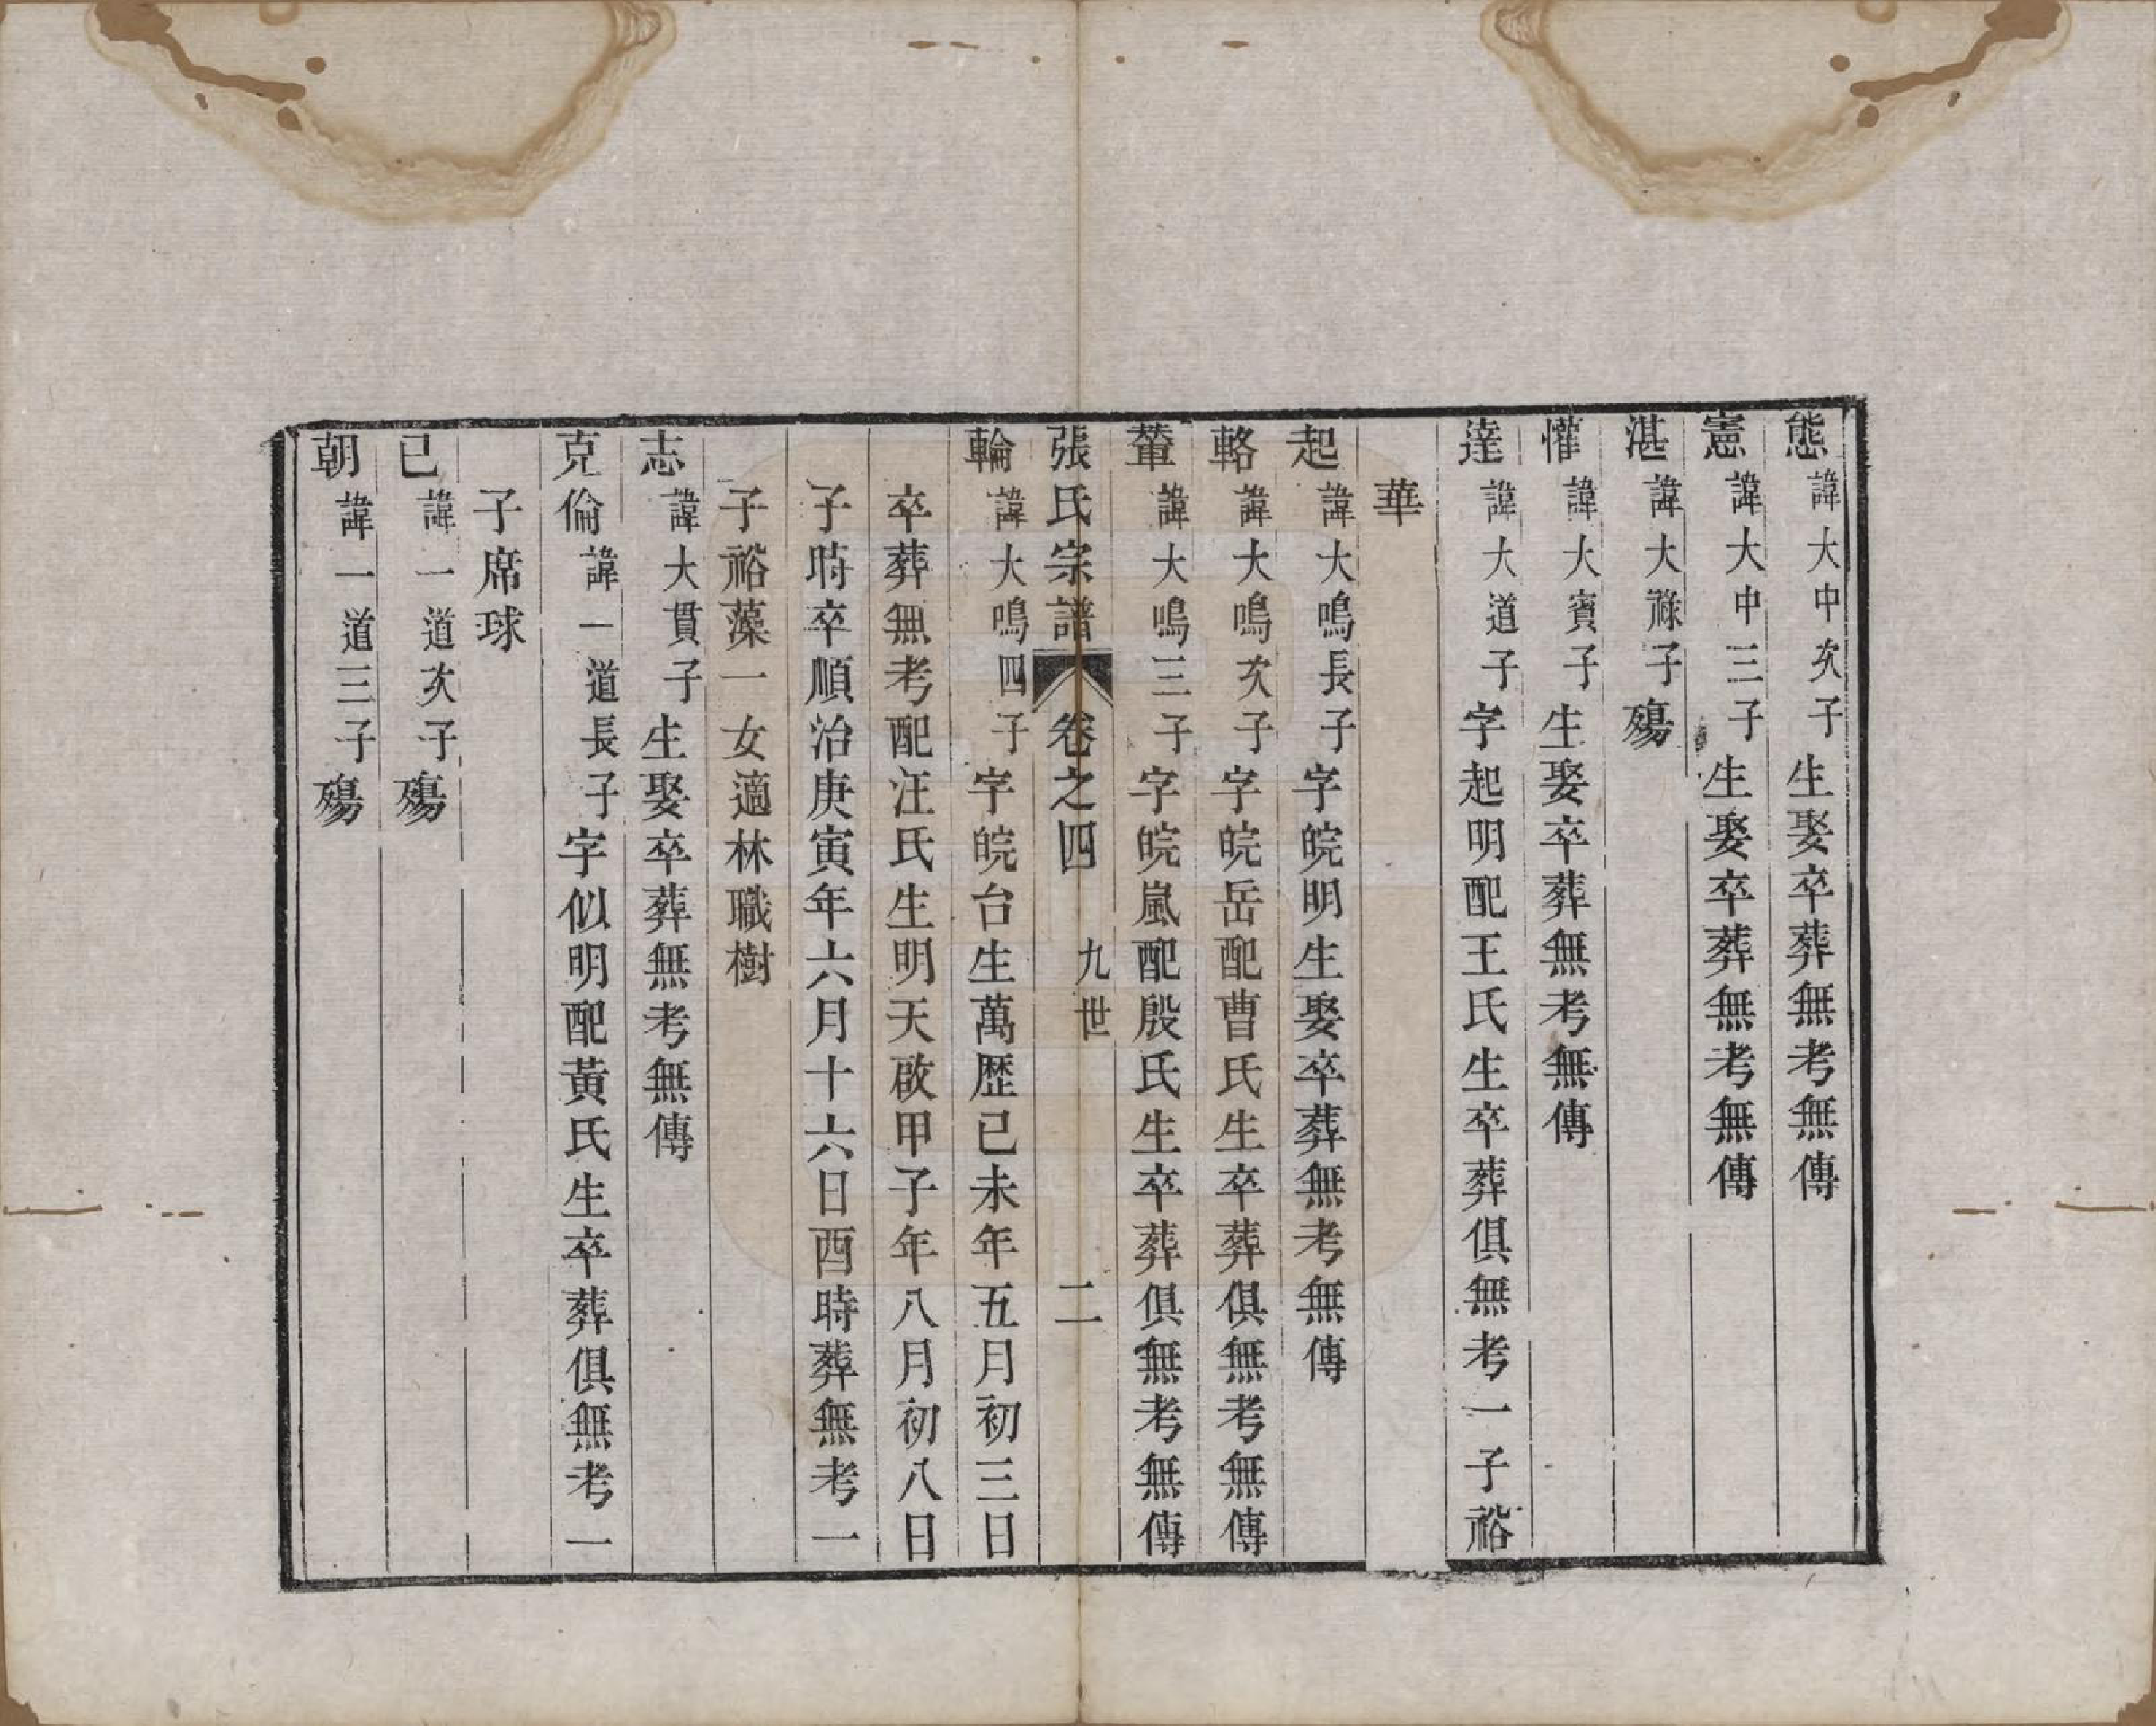 態諱大中次子生娶卒葬無考無傳
憲諱大中三子生娶卒葬無考無傳
湛諱大祿子殤
懽諱大賓子生娶卒葬無考無傳
達諱大道子字起明配王氏生卒葬俱無考一子裕
華
起諱大鳴長子字皖明生娶卒葬無考無傳
輅諱大鳴次子字皖岳配曹氏生卒葬俱無考無傳
輦諱大鳴三子字皖嵐配殷氏生卒葬俱無考無傳
張氏宗譜 卷之四 九世 二
輪諱大鳴四子字皖台生萬歷己未年五月初三日
卒葬無考配汪氏生明天啟甲子年八月初八日
子時卒順治庚寅年六月十六日酉時葬無考一
子裕藻一女適林職樹
志諱大貫子生娶卒葬無考無傳
克倫諱一道長子字似明配黃氏生卒葬俱無考一
子席球
已諱一道次子殤
朝諱一道三子殤